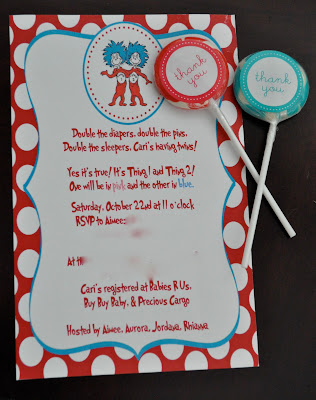 thank
you
thank
you
Double the diapers, double the pins,
Double the sleepers, Cari's having twins!
Yes it's true! It's Thing 1 and Thing 2!
One will be in pink and the other in blue.
Saturday, October 22nd at 11 o'clock
RSVP to Aimee:
At th
Cari's registered at Babies R Us,
Buy Buy Baby, & Precious Cargo
Hosted by Aimee, Aurora, Jordana, Rhianna